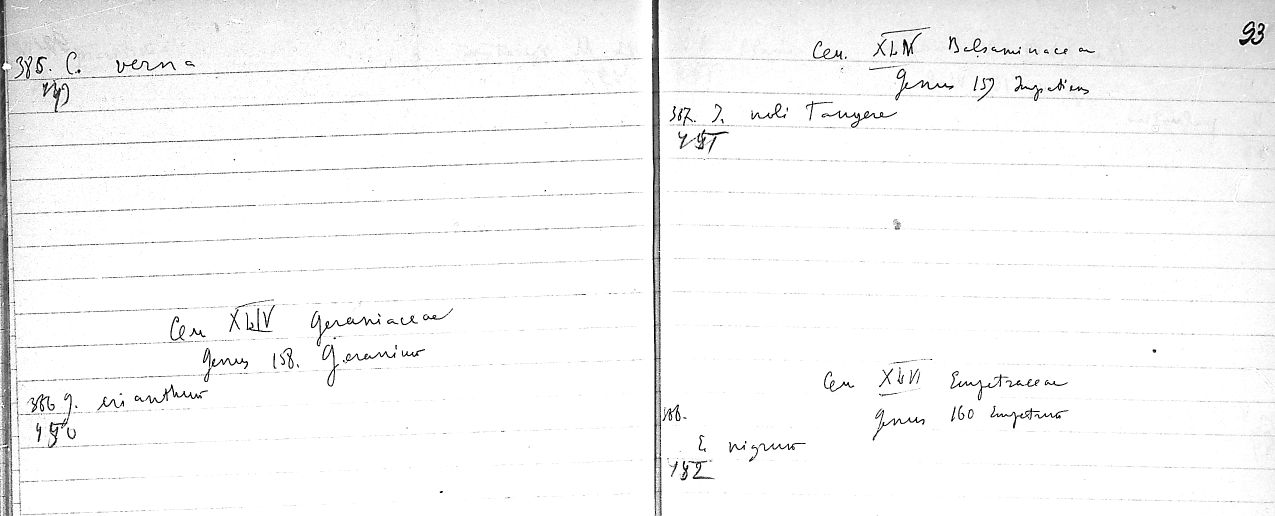 385. C. verna
Сем XLIV Geraniaceae
Genus 158. Geranium
386 G. erianthum
450
93
Сем. XLV Balsaminaceae
Genus 159 Impatiens
387. I. noli Tangere
451
Сем XLVI Empetraceae
Genus 160 Empetrum
388.
E nigrum
452